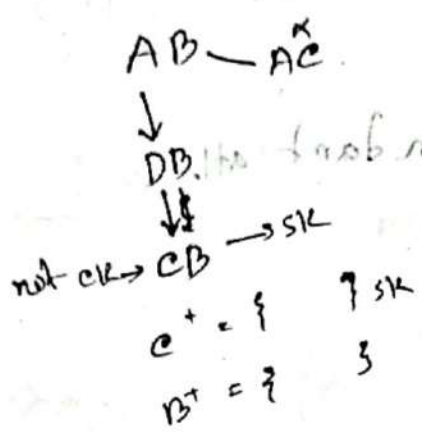 AB — AC x
↓
DB
↓↓
not CK → CB → SK
C⁺ = { } SK
B⁺ = { }